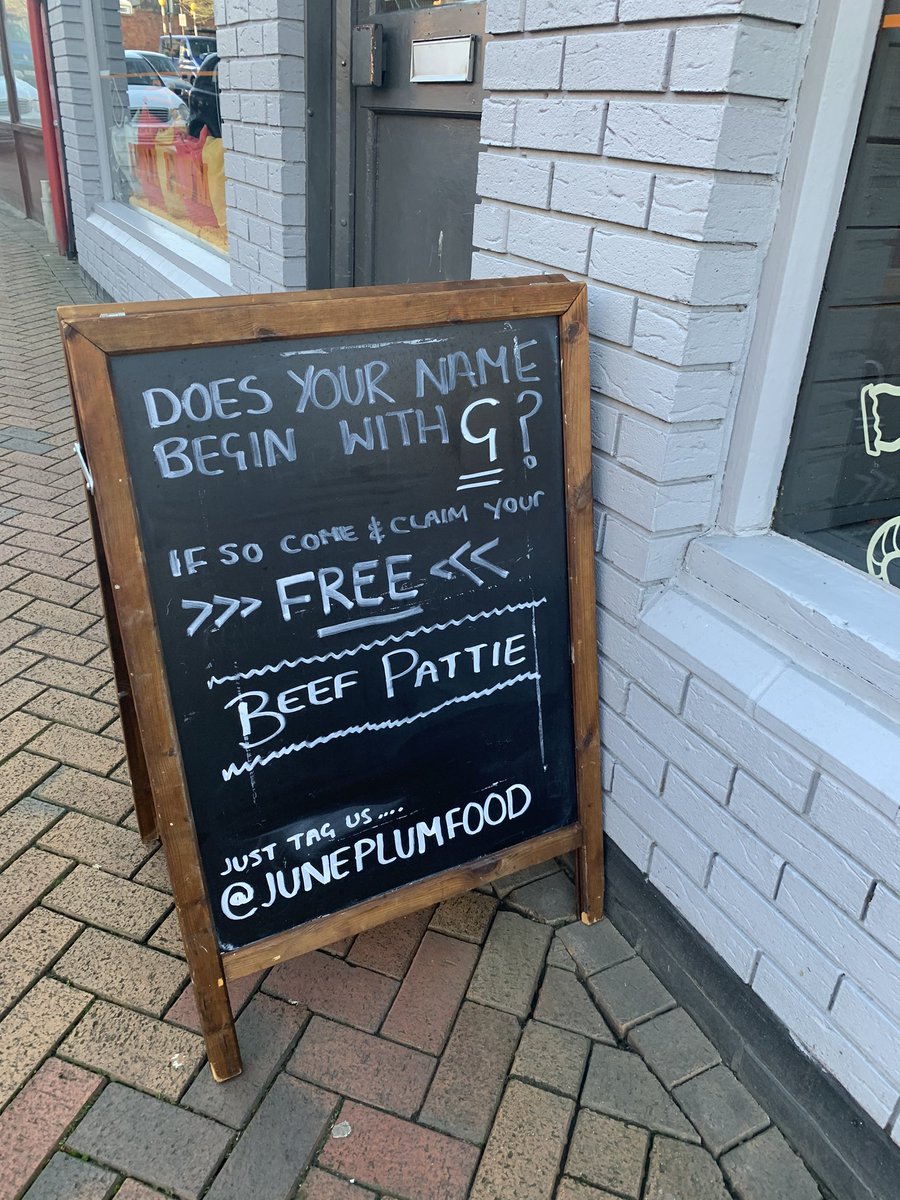 DOES YOUR NAME
BEGIN WITH G?
IF SO COME & CLAIM YOUR
>>> FREE <<<
BEEF PATTIE
JUST TAG US....
@JUNEPLUMFOOD